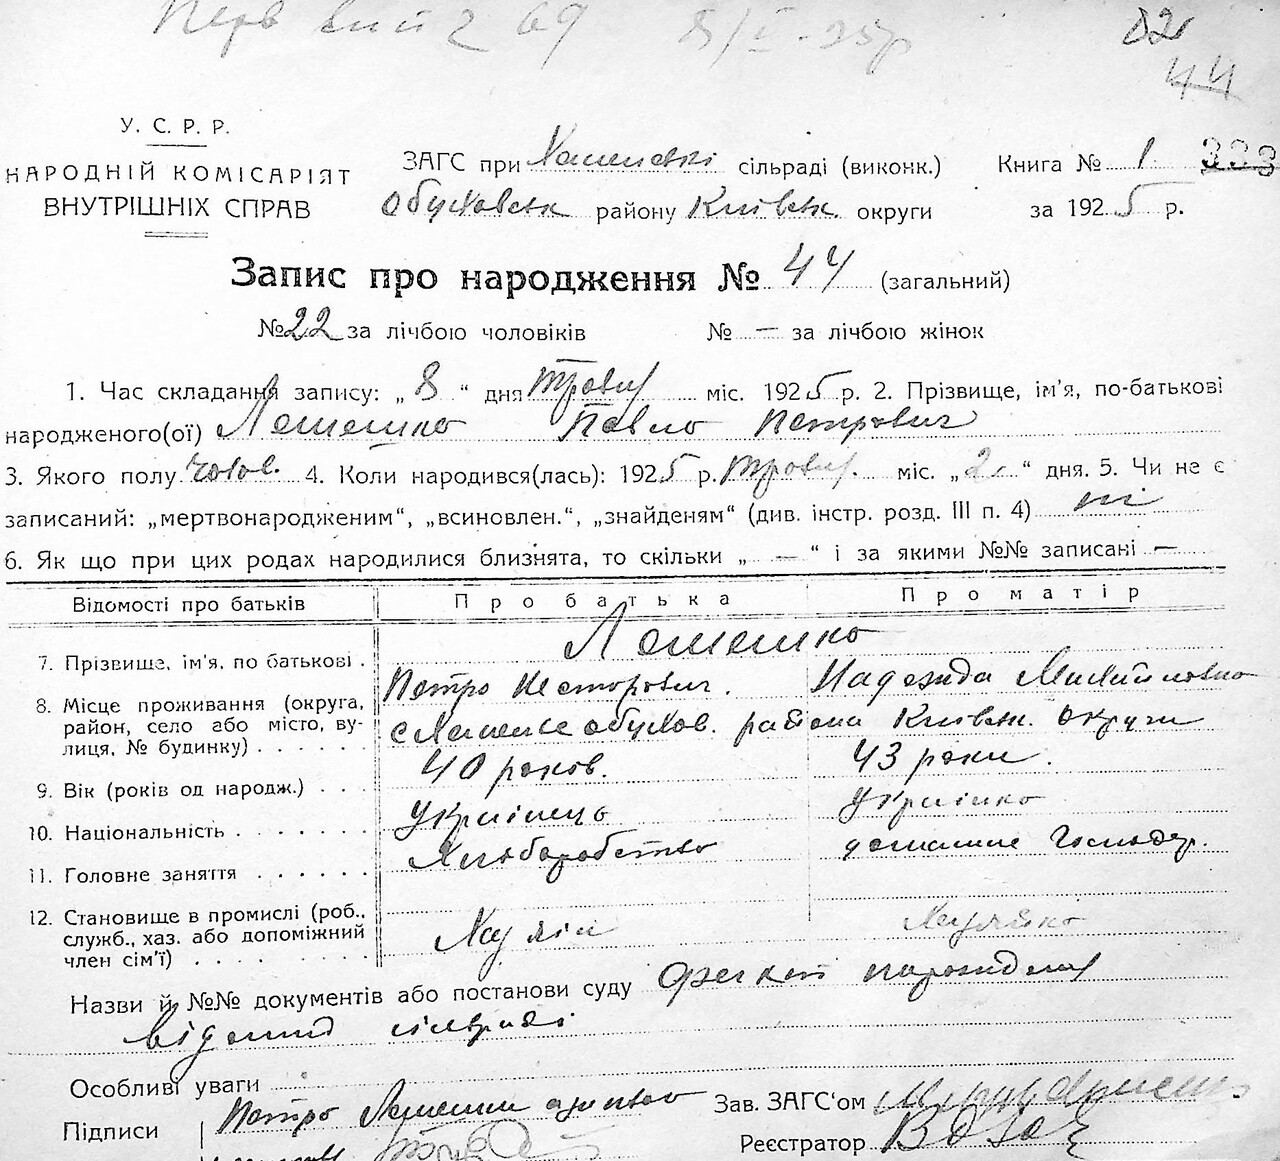 82
44
У. С. Р. Р.
НАРОДНІЙ КОМІСАРІЯТ
ВНУТРІШНІХ СПРАВ
ЗАГС при сільраді (виконк.)
Обуховськ району Київськ. округи
Книга № 1 333
за 1925 р.
Запис про народження № 44 (загальний)
№ 22 за лічбою чоловіків № — за лічбою жінок
1. Час складання запису: „ 8 “ дня травня міс. 1925 р. 2. Прізвище, ім'я, по-батькові
народженого(ої) Лемешко Павло Петрович
3. Якого полу чолов. 4. Коли народився(лась): 1925 р. травня. міс. „ 2. “ дня. 5. Чи не є
записаний: „мертвонародженим“, „всиновлен.“, „знайденям“ (див. інстр. розд. III п. 4) ні
6. Як що при цих родах народилися близнята, то скільки „ — “ і за якими №№ записані —
Відомості про батьків Про батька Про матір
7. Прізвище, ім'я, по батькові . Лемешко
Петро Несторович. Надежда Михайловна
8. Місце проживання (округа,
район, село або місто, ву-
лиця, № будинку) . . . . . обухов. района Київськ. округи
9. Вік (років од народж.) . . . 40 роков. 43 роки.
10. Національність . . . . . . . Українець Українка
11. Головне заняття . . . . . . Хліборобство домашнє Господар.
12. Становище в промислі (роб.,
служб., хаз. або допоміжний
член сім'ї) . . . . . . . . Хазяїн Хазяйка
Назви й №№ документів або постанови суду народження
відомий сільраді
Особливі уваги
Підписи Петро Лемешко
Зав. ЗАГС'ом
Реєстратор